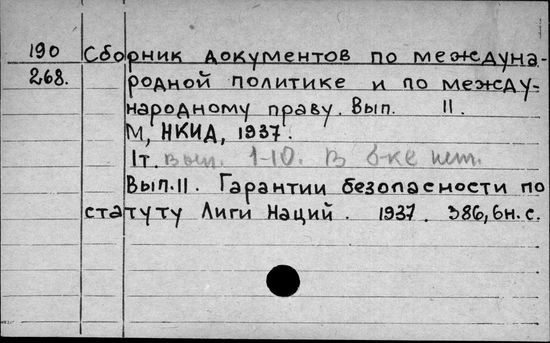 190 Сборник документов по междуна-
268. родной политике и по между-
народному праву. Вып. 11.
М, НКИД, 1937.
1т. вып. 1-10. В б-ке нет.
Вып.11. Гарантии безопасности по
статуту Лиги Наций. 1937. 386,6н.с.